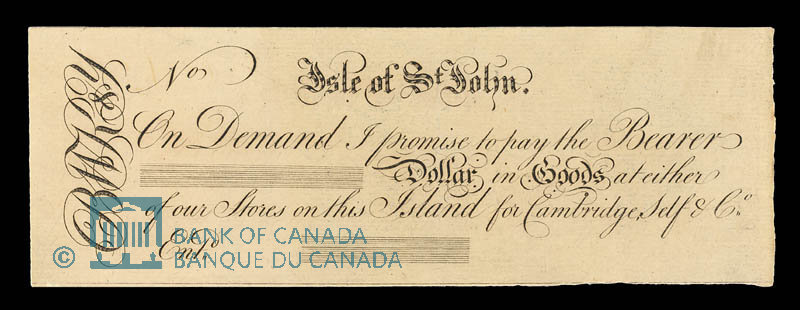 No
Isle of St John.
On Demand I promise to pay the Bearer
Dollar in Goods at either
of our Stores on this Island for Cambridge, Self & Co.
Entd
© BANK OF CANADA
BANQUE DU CANADA